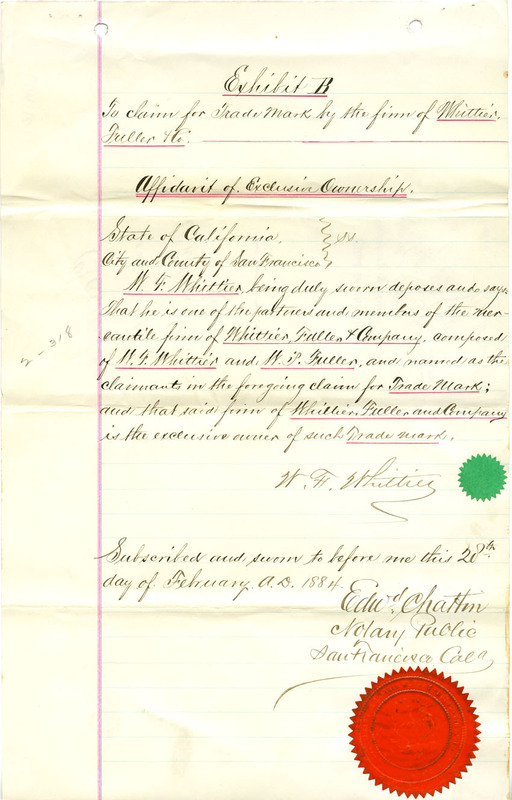 Exhibit B
To claim for Trade Mark by the firm of Whittier,
Fuller & Co.
Affidavit of Exclusive Ownership.
State of California, } ss.
City and County of San Francisco,
W. F. Whittier, being duly sworn deposes and says:
That he is one of the partners and members of the mer-
cantile firm of Whittier, Fuller & Company, composed
of W. F. Whittier and W. P. Fuller, and named as the
claimants in the foregoing claim for Trade Mark;
and that said firm of Whittier, Fuller and Company
is the exclusive owner of such Trade Mark.
W. F. Whittier
Subscribed and sworn to before me this 28th
day of February A.D. 1884.
Edwd Chattin
Notary Public
San Francisco Cala